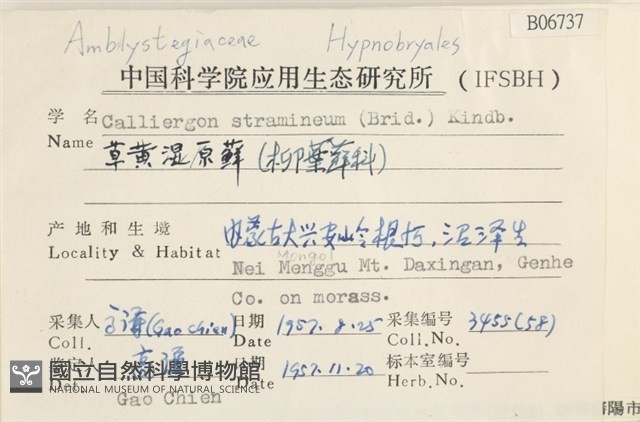 B06737
Amblystegiaceae Hypnobryales
中国科学院应用生态研究所 (IFSBH)
学名 Calliergon stramineum (Brid.) Kindb.
Name 草黄湿原藓 (柳葉藓科)
产地和生境 内蒙古大兴安岭根河,沼泽生
Mongol
Locality & Habitat Nei Menggu Mt. Daxingan, Genhe
Co. on morass.
采集人 高谦(Gao Chien) 日期 1957.8.25 采集编号 3455(58)
Coll. Date Coll.No.
鉴定人 高谦 日期 1957.11.20 标本室编号
Det Date Herb.No.
Gao Chien
國立自然科學博物館
NATIONAL MUSEUM OF NATURAL SCIENCE
陽市